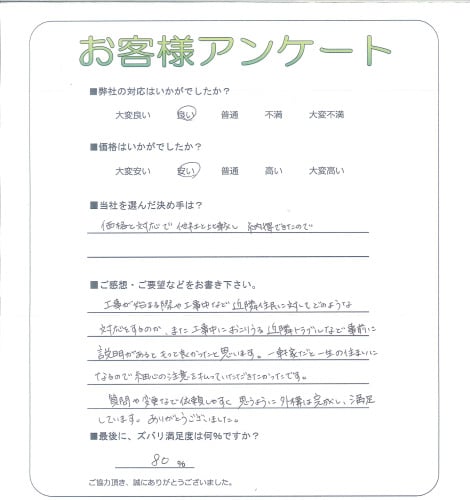 お客様アンケート
■弊社の対応はいかがでしたか？
大変良い　良い　普通　不満　大変不満
■価格はいかがでしたか？
大変安い　安い　普通　高い　大変高い
■当社を選んだ決め手は？
価格と対応で他社と比較し 納得できたので
■ご感想・ご要望などをお書き下さい。
工事が始まる際や工事中など近隣住民に対してどのような
対応をするのか、また工事中におこりうる近隣トラブルなど事前に
説明があるともっと良かったと思います。一軒家だと一生の住まいに
なるので細心の注意を払っていただきたかったです。
質問や変更など依頼しやすく思うように外構は完成し、満足
しています。ありがとうございました。
■最後に、ズバリ満足度は何％ですか？
80 ％
ご協力頂き、誠にありがとうございました。